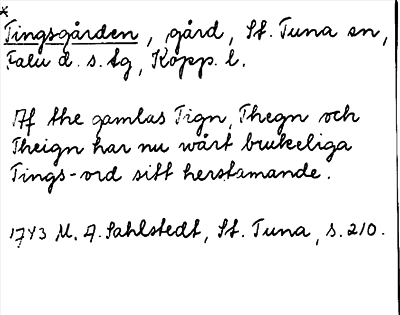 *
Tingsgården, gård, St. Tuna sn,
Falu d. s. tg, Kopp. l.
Af the gamlas Tign, Thegn och
Theign har nu wårt brukeliga
Tings-ord sitt herstamande.
1743 M. A. Sahlstedt, St. Tuna, s. 210.